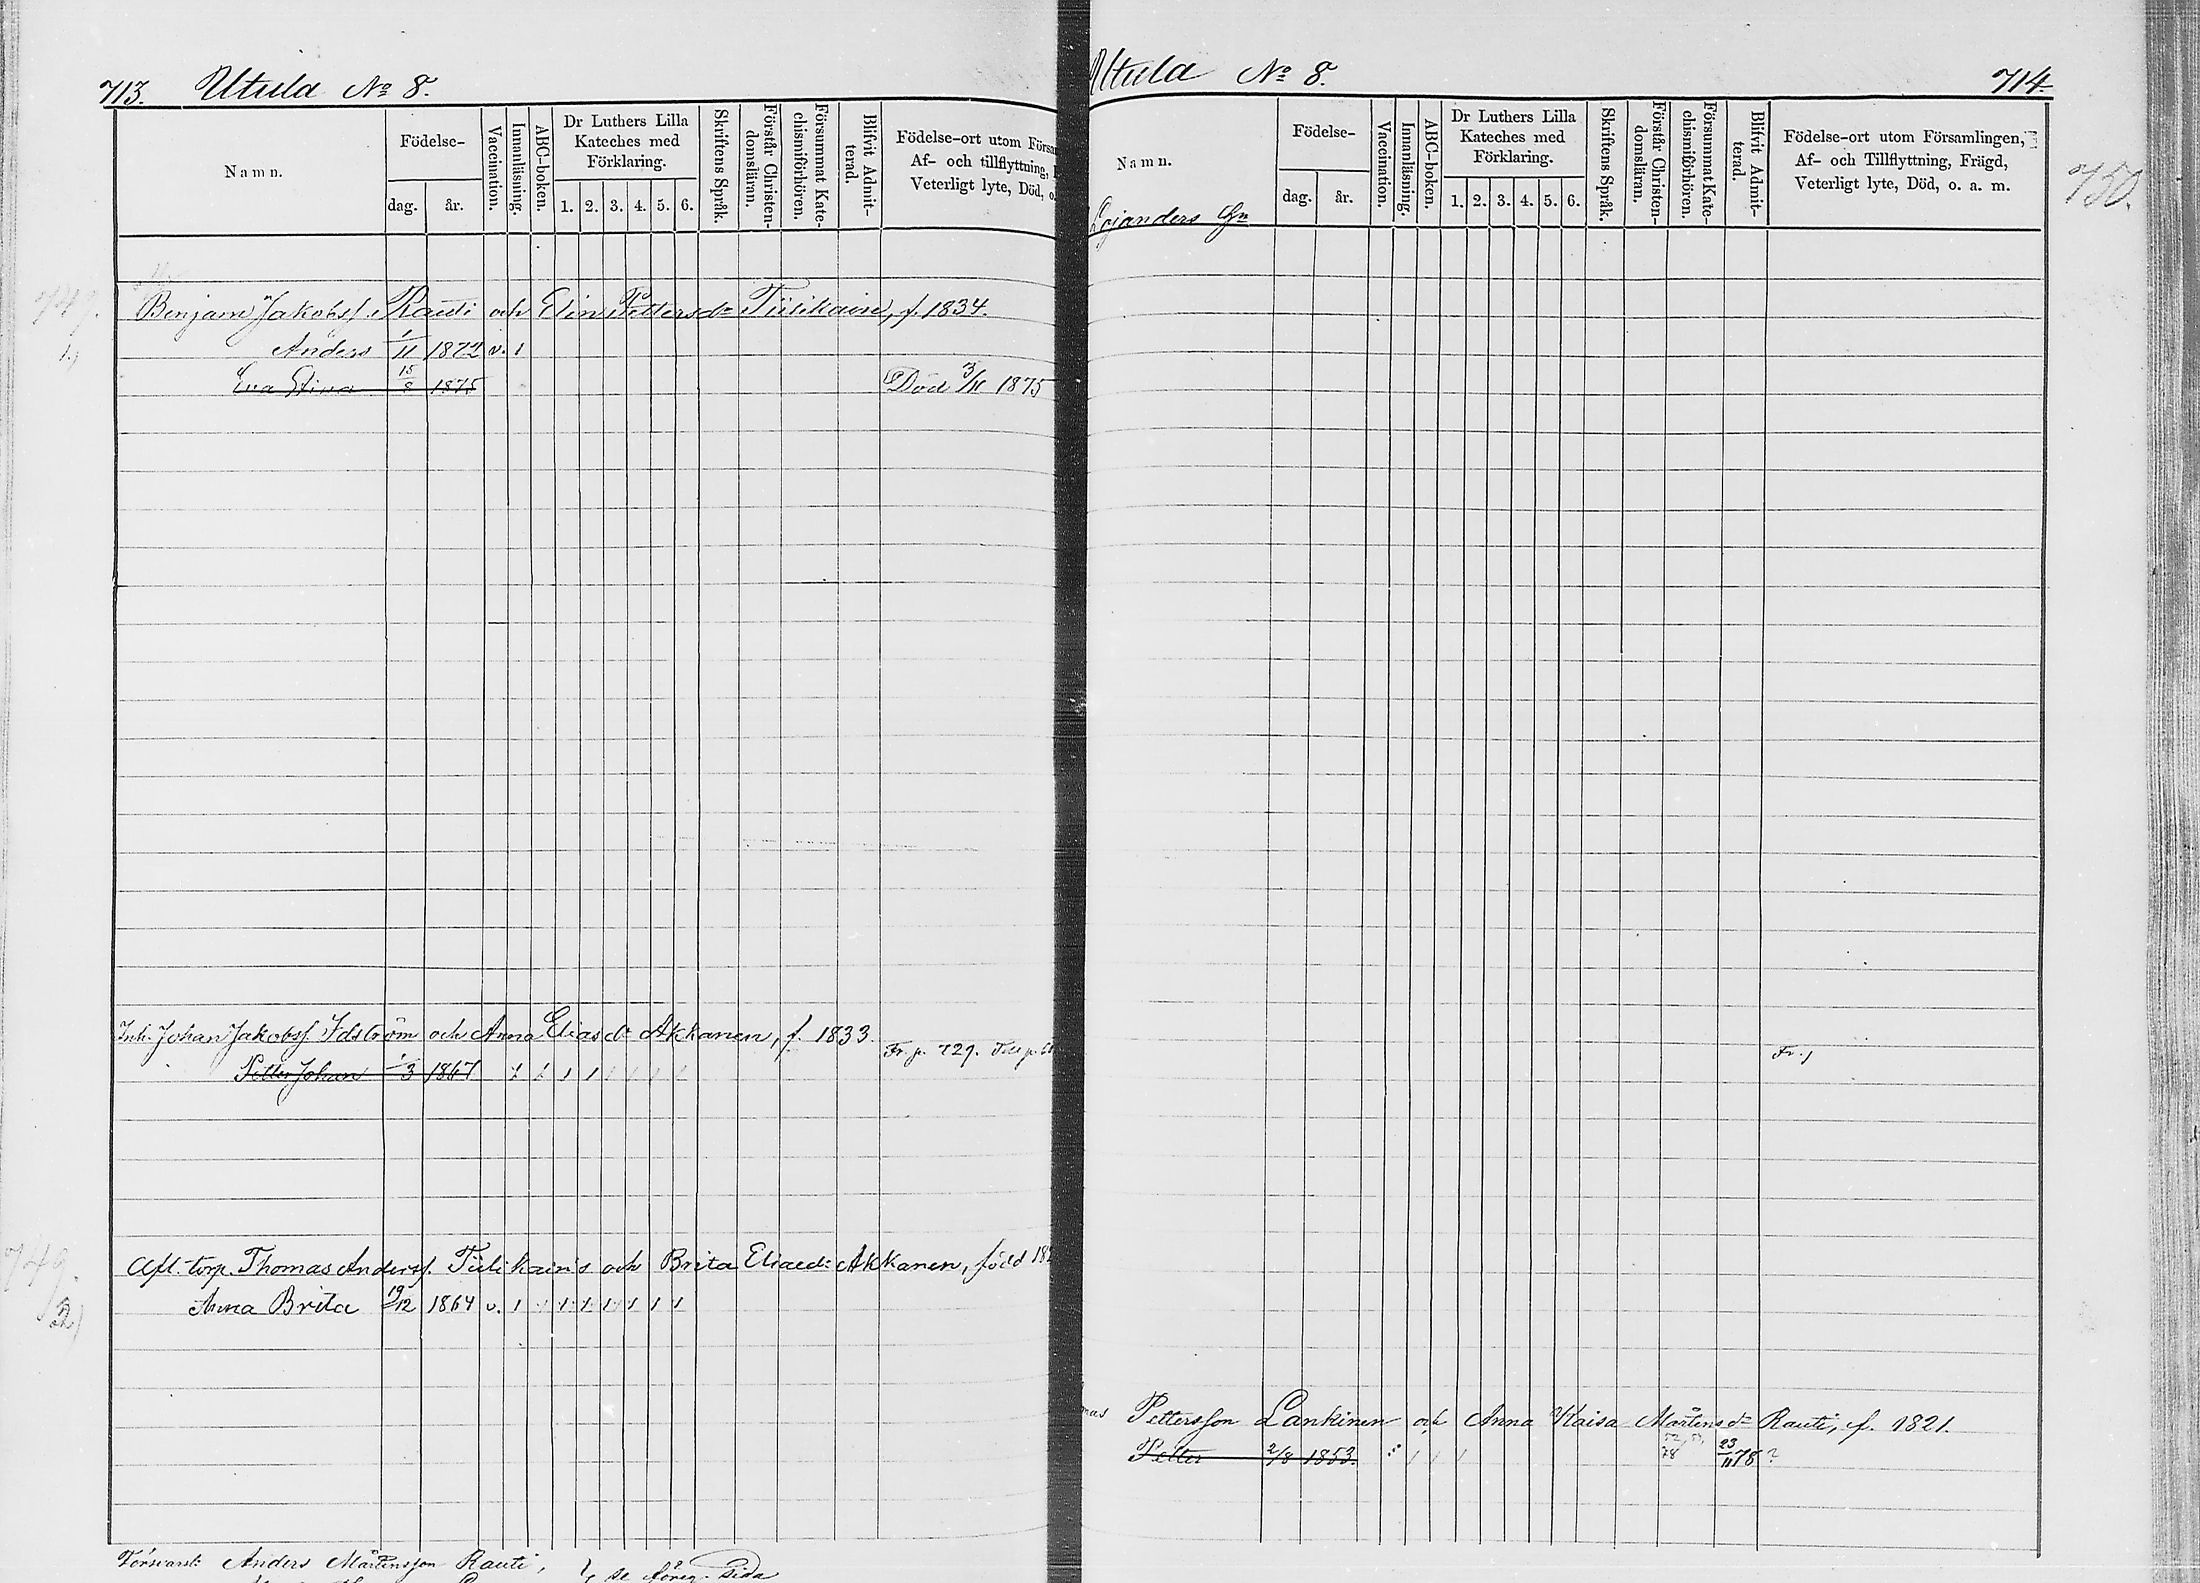 713. Utula No 8.
Namn.
Födelse-
dag.
år.
Vaccination.
Innanläsning.
ABC-boken.
Dr Luthers Lilla
Kateches med
Förklaring.
1. 2. 3. 4. 5. 6.
Skriftens Språk.
Förstår Christen-
domsläran.
Försummat Kate-
chismiförhören.
Blifvit Admit-
terad.
Födelse-ort utom Försa
Af- och tillflyttning,
Veterligt lyte, Död, o.
749.
Benjam Jakobsf. Rauti och Elin Pettersdr Tiilikain, f. 1834.
Anders 1/11 1872 v. 1
Eva Stina 15/8 1875 Död 3/11 1875
Inh. Johan Jakobsf. Idström och Anna Eliasdr Akkanen, f. 1833.
Petter Johan 1/3 1867 Fr. p. 729.
749.
2)
Afl. torp. Thomas Andersf. Tiilikain's och Brita Eliaed: Akkanen, född 18
Anna Brita 19/12 1864 v. 1 1 1 1 1 1 1 1
Anders Mårtensson Rauti, se föreg. sida
Utula No 8. 714.
Namn.
Lojanders
Födelse-
dag.
år.
Vaccination.
Innanläsning.
ABC-boken.
Dr Luthers Lilla
Kateches med
Förklaring.
1. 2. 3. 4. 5. 6.
Skriftens Språk.
Förstår Christen-
domsläran.
Försummat Kate-
chismiförhören.
Blifvit Admit-
terad.
Födelse-ort utom Församlingen,
Af- och Tillflyttning, Frägd,
Veterligt lyte, Död, o. a. m.
750.
Fr.
mas Pettersson Lankinen och Anna Kaisa Mårtensdr Rauti, f. 1821.
Petter 2/8 1853. 78 23/11 78 ?